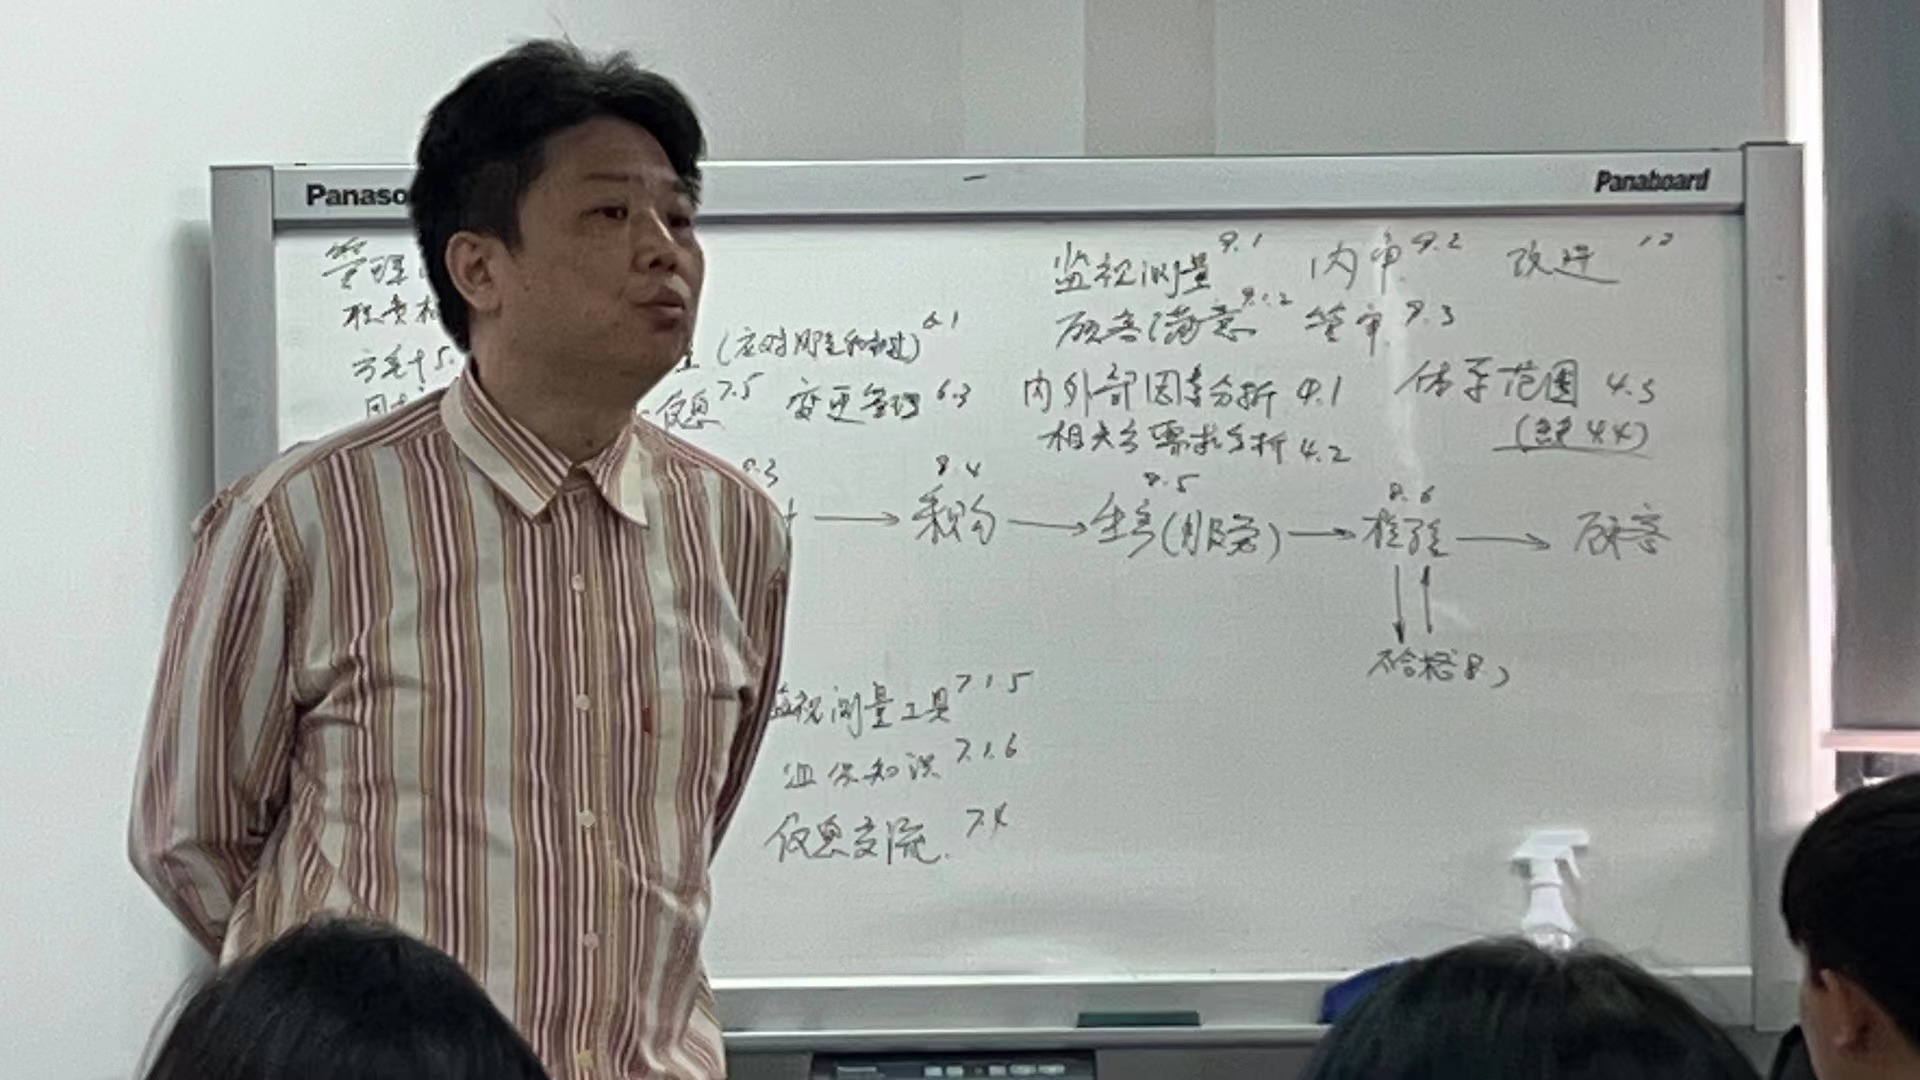 Panaso
Panaboard
管理
监视测量 9.1 内审 9.2 改进 10
职责
顾客满意 9.1.2 管审 9.3
(应对风险和机遇) 6.1
方针 5.
信息 7.5 变更管理 6.3
内外部因素分析 4.1 体系范围 4.3
相关方需求分析 4.2 (过程 4.4)
8.3 8.4 8.5 8.6
→ 采购 → 生产(服务) → 检验 → 顾客
不合格 8.7
监视测量工具 7.1.5
组织知识 7.1.6
信息交流 7.4